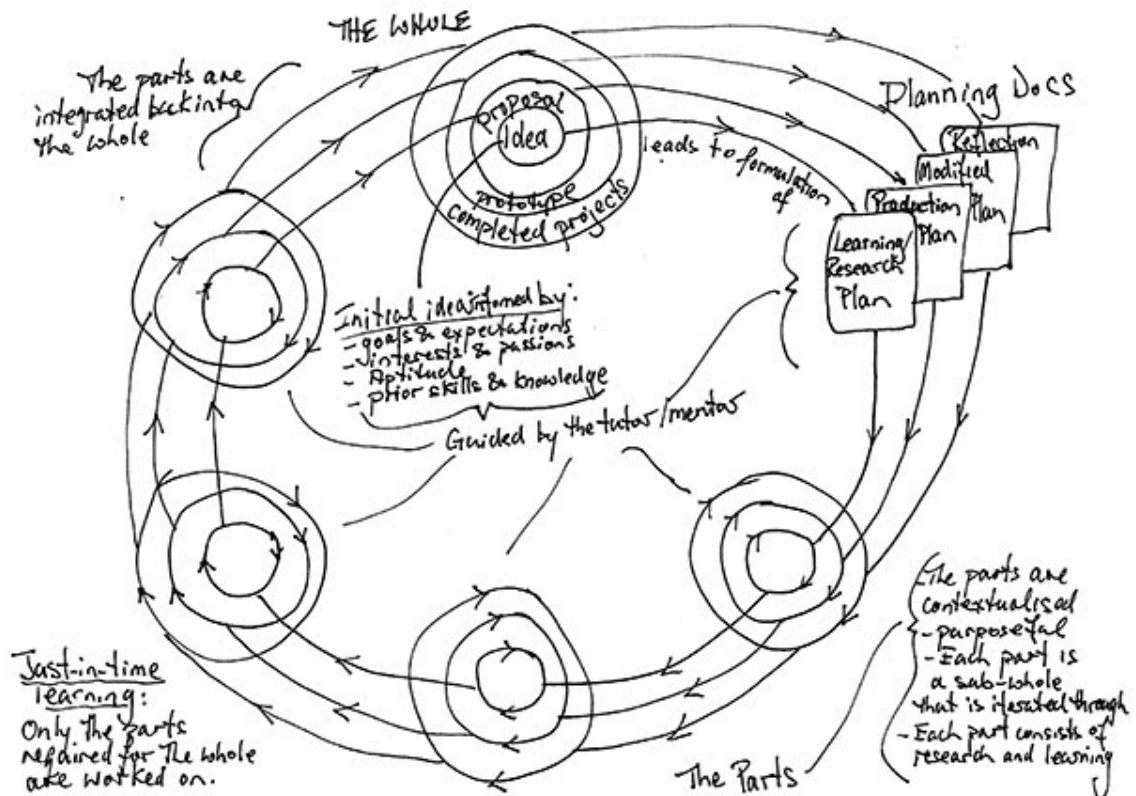 THE WHOLE
The parts are
integrated back into
the whole
proposal
Idea
prototype
completed projects
leads to formulation
of
Planning Docs
Reflection
Modified
Plan
Production
Plan
Learning/
Research
Plan
Initial idea informed by:
- goals & expectations
- interests & passions
- Aptitude
- prior skills & knowledge
Guided by the tutor/mentor
Just-in-time
learning:
Only the parts
required for the whole
are worked on.
The Parts
- The parts are
contextualised
- purposeful
- Each part is
a sub-whole
that is iterated through
- Each part consists of
research and learning